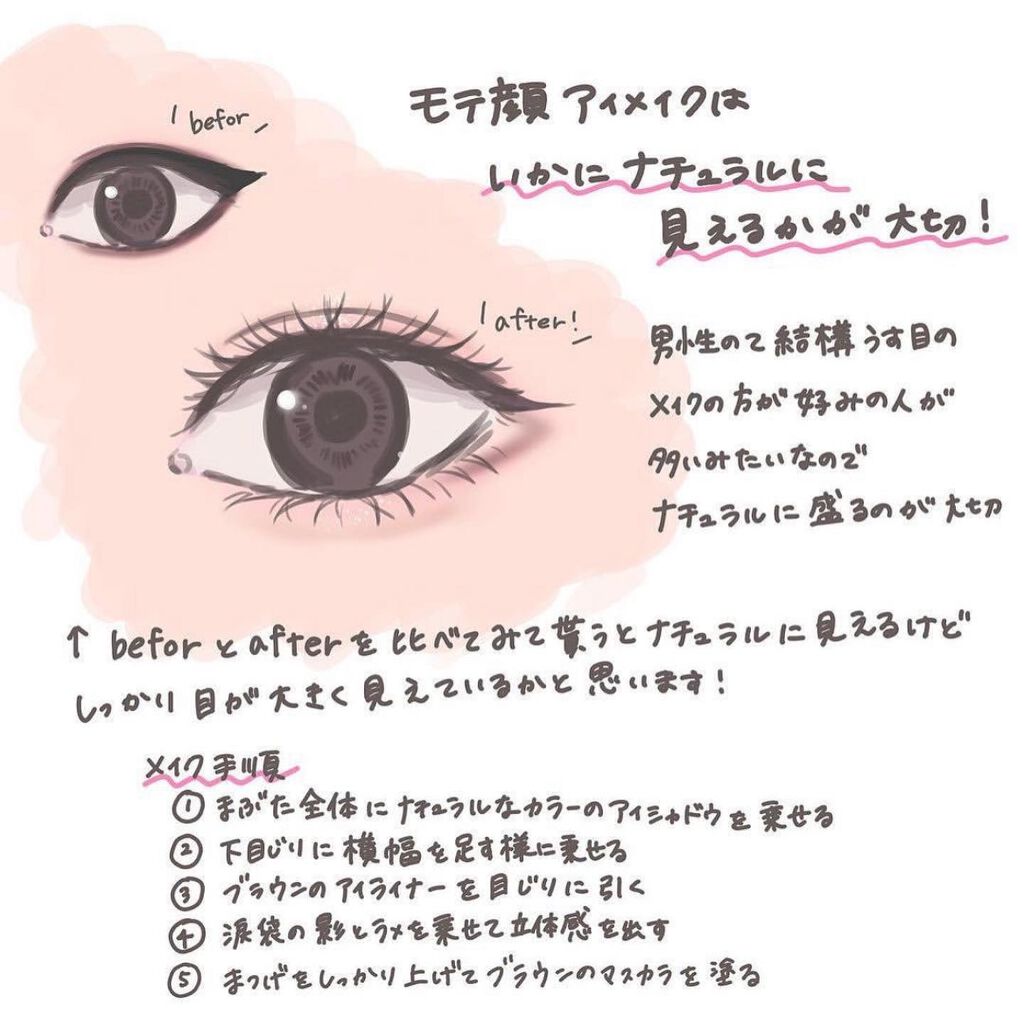 befor
モテ顔 アイメイクは
いかに ナチュラルに
見えるかが 大切!
after!
男性って結構うす目の
メイクの方が好みの人が
多いみたいなので
ナチュラルに盛るのが大切
↑ befor と after を 比べてみて貰うとナチュラルに見えるけど
しっかり目が大きく見えているかと思います!
メイク手順
① まぶた全体にナチュラルなカラーのアイシャドウを乗せる
② 下目じりに横幅を足す様に乗せる
③ ブラウンのアイライナーを目じりに引く
④ 涙袋の影とラメを乗せて立体感を出す
⑤ まつげをしっかり上げてブラウンのマスカラを塗る